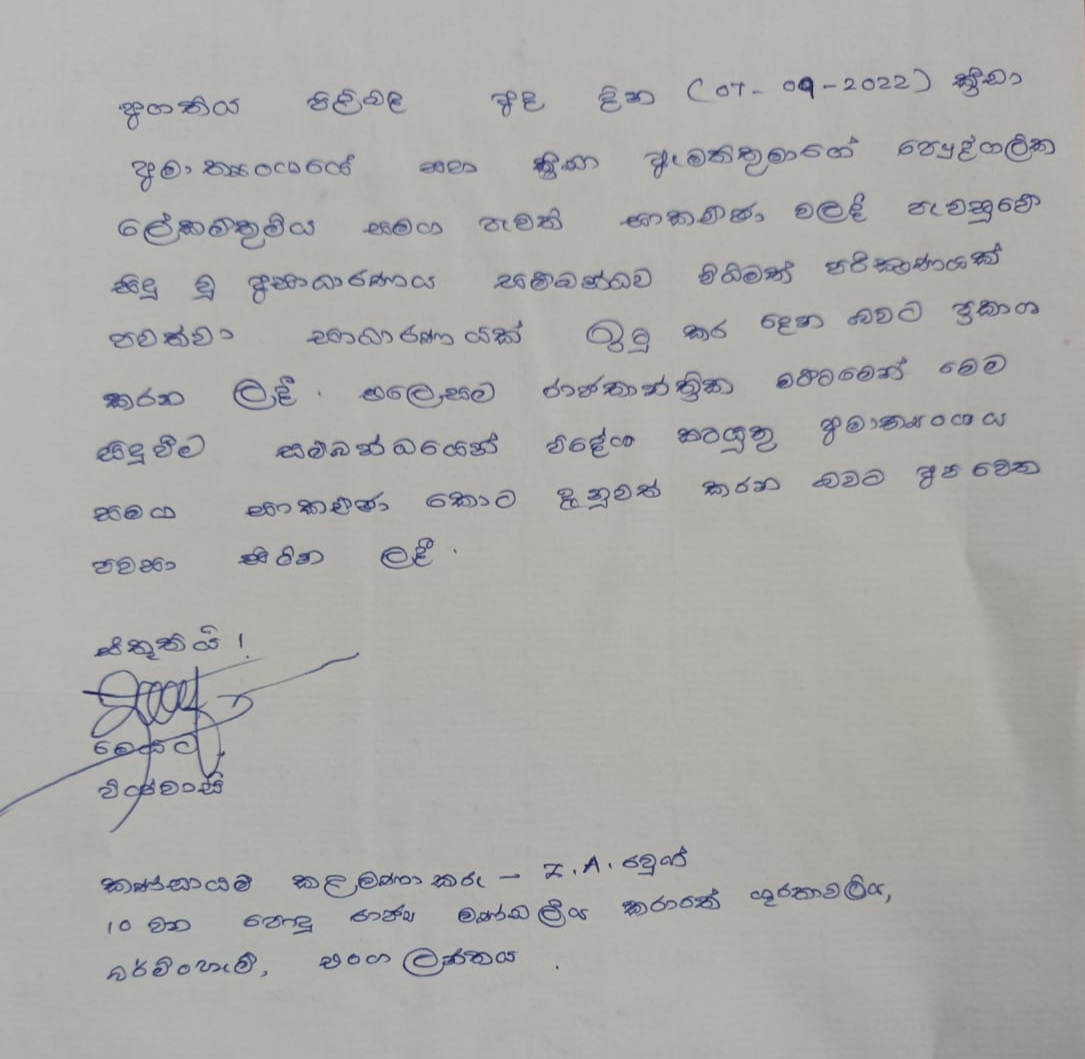 අගතිය පිළිබඳ අද දින (07-09-2022) ක්‍රීඩා
අමාත්‍යංශයේ සහ ක්‍රීඩා ඇමතිතුමාගේ පෞද්ගලික
ලේකම්තුමිය සමග පැවති සාකච්ඡා වලදී පැවසුවේ
සිදු වූ අසාධාරණය සම්බන්ධව විධිමත් පරීක්‍ෂණයක්
පවත්වා සාධාරණයක් ඉටු කර දෙන බවට ප්‍රකාශ
කරන ලදී. එලෙසම රාජතාන්ත්‍රික මට්ටමෙන් මෙම
සිදුවීම සම්බන්ධයෙන් විදේශ කටයුතු අමාත්‍යංශය
සමග සාකච්ඡා කොට දැනුවත් කරන බවට අප වෙත
පවසා සිටින ලදී.
ස්තූතියි!
මෙයට
විශ්වාසී
කණ්ඩායම් කළමණාකරු - I.A. රවුෆ්
10 වන පොදු රාජ්‍ය මණ්ඩලීය කරාතේ ශූරතාවලිය,
බර්මිංහැම්, එංගලන්තය.